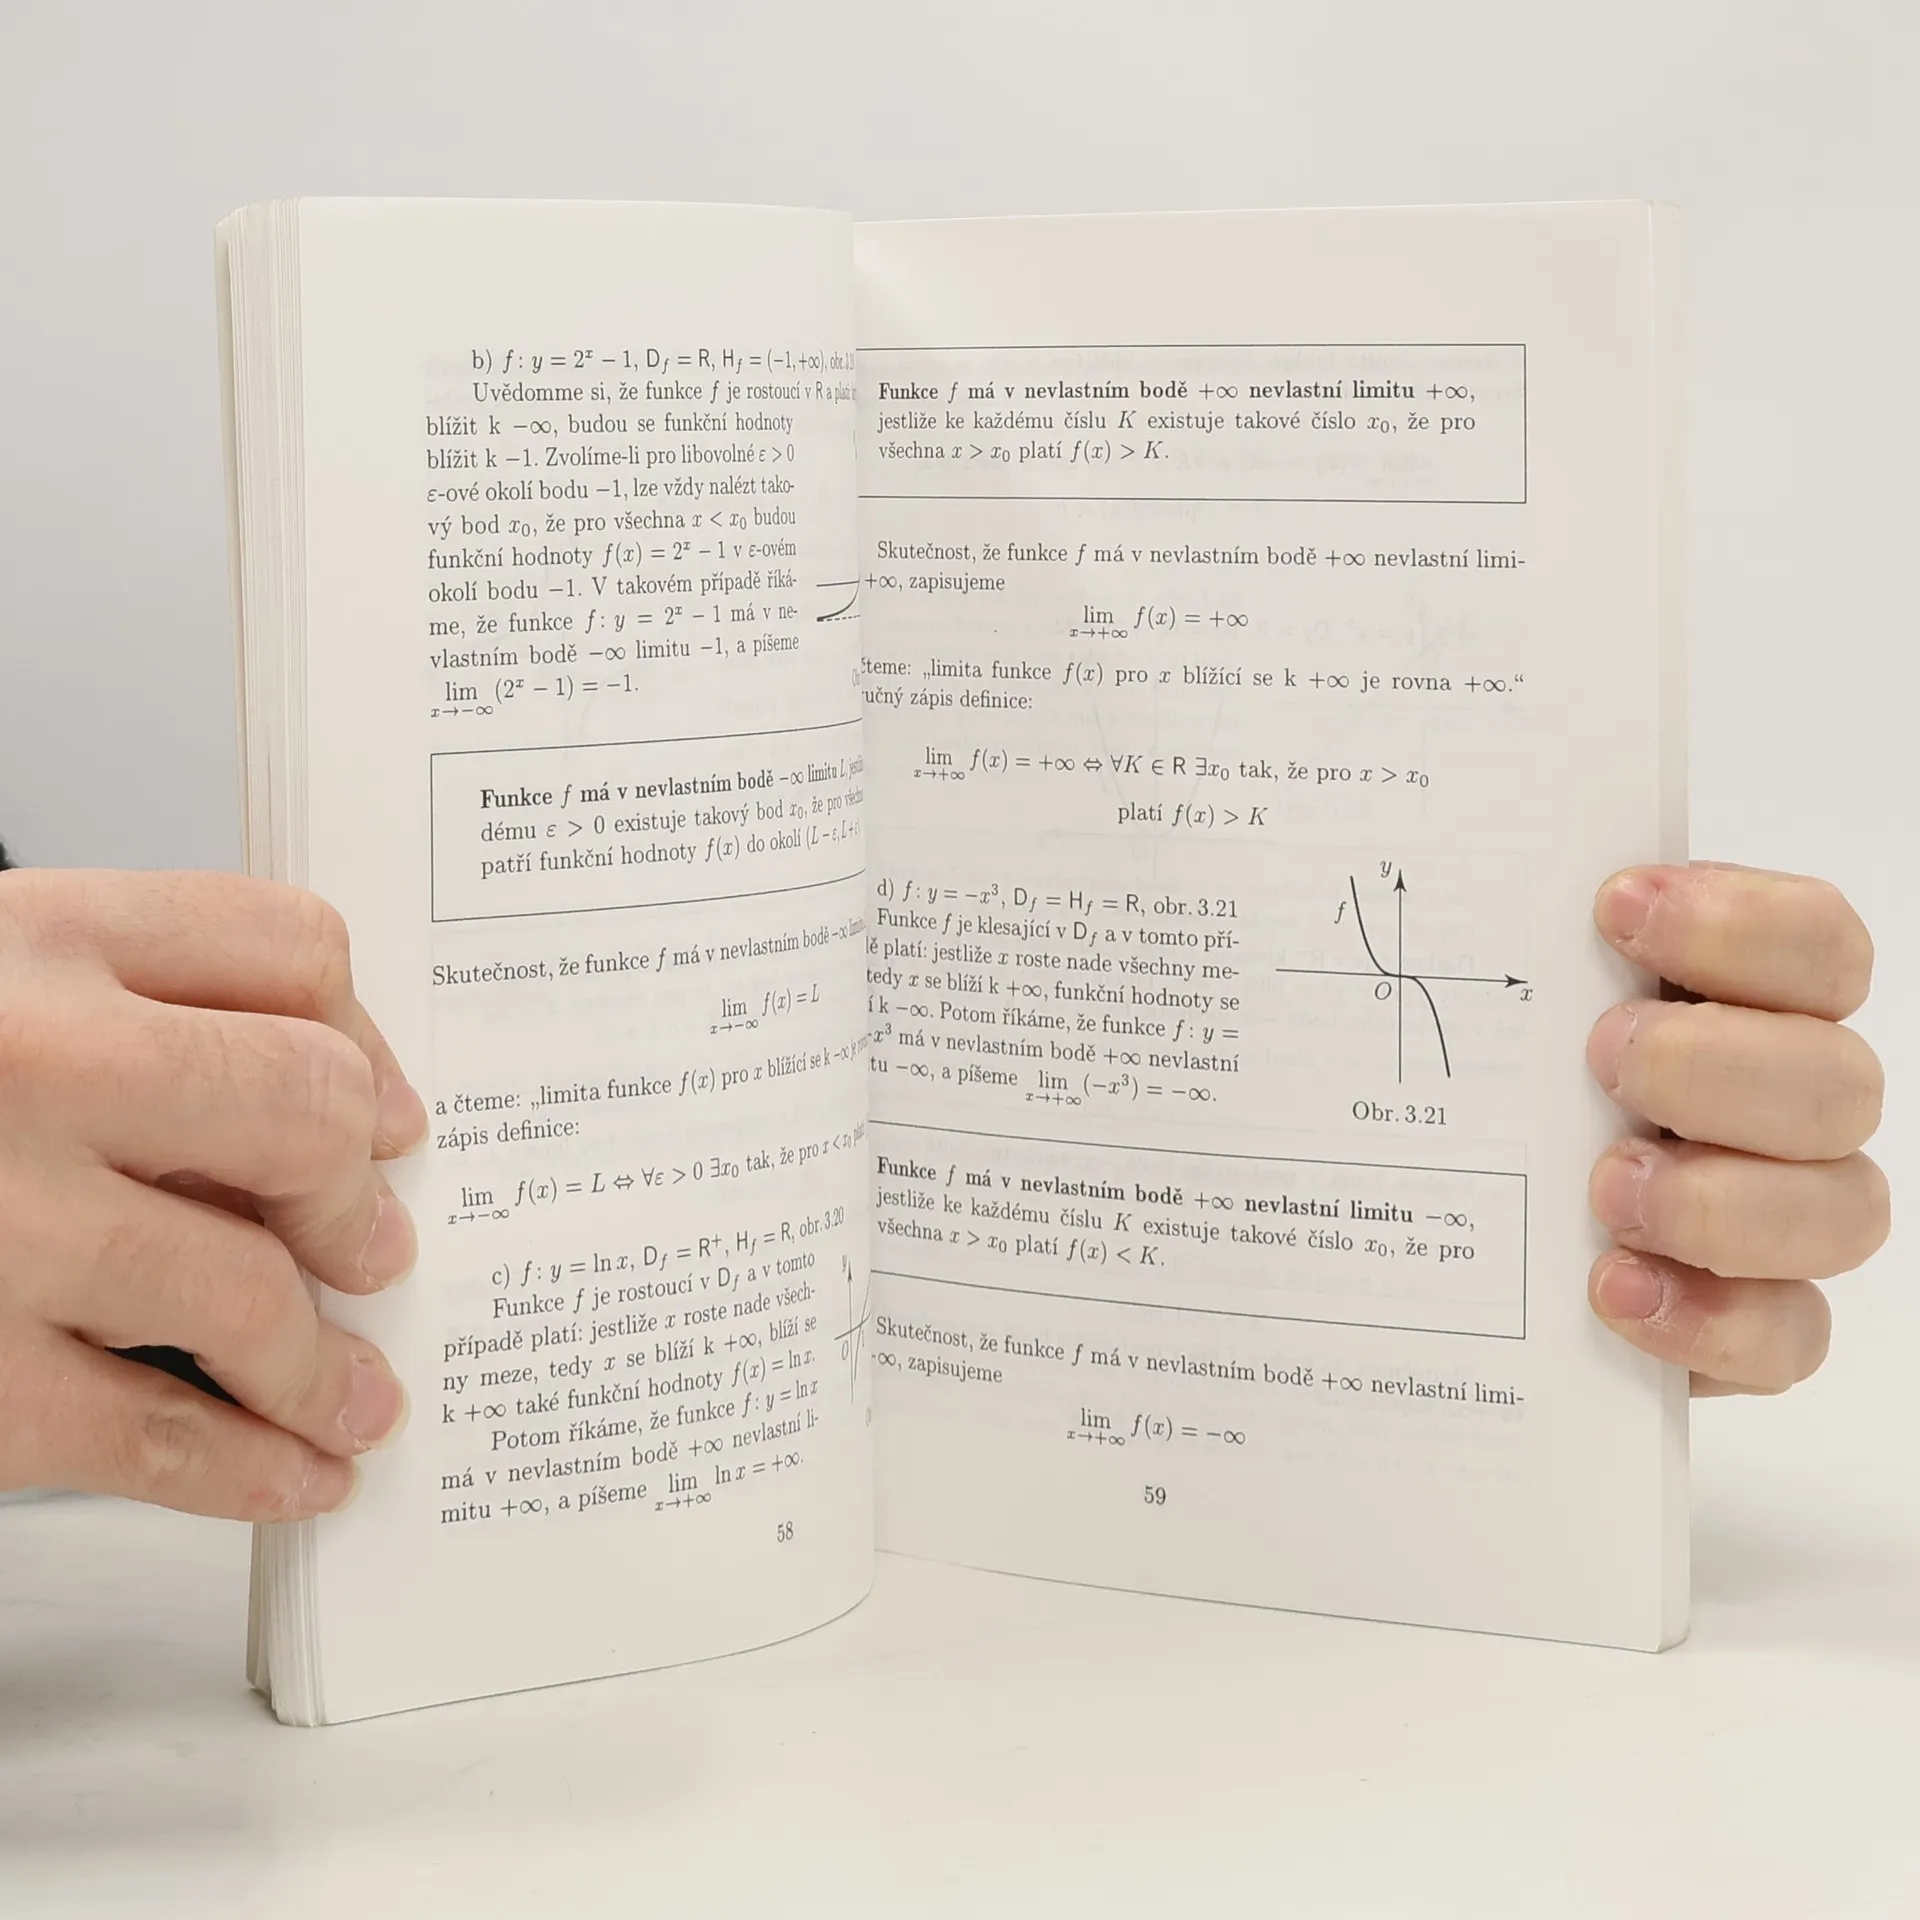 b) f: y = 2ˣ − 1, D_f = R, H_f = (−1, +∞), obr.
Uvědomme si, že funkce f je rostoucí v R a
blížit k −∞, budou se funkční hodnoty
blížit k −1. Zvolíme-li pro libovolné ε > 0
ε-ové okolí bodu −1, lze vždy nalézt tako-
vý bod x₀, že pro všechna x < x₀ budou
funkční hodnoty f(x) = 2ˣ − 1 v ε-ovém
okolí bodu −1. V takovém případě říká-
me, že funkce f: y = 2ˣ − 1 má v ne-
vlastním bodě −∞ limitu −1, a píšeme
lim (2ˣ − 1) = −1.
x→−∞
Funkce f má v nevlastním bodě −∞ limitu L,
dému ε > 0 existuje takový bod x₀, že pro
patří funkční hodnoty f(x) do okolí (L − ε, L + ε)
Skutečnost, že funkce f má v nevlastním bodě −∞
lim f(x) = L
x→−∞
a čteme: „limita funkce f(x) pro x blížící se k −∞ je
zápis definice:
lim f(x) = L ⇔ ∀ε > 0 ∃x₀ tak, že pro x < x₀
x→−∞
c) f: y = ln x, D_f = R⁺, H_f = R, obr. 3.20
Funkce f je rostoucí v D_f a v tomto
případě platí: jestliže x roste nade všech-
ny meze, tedy x se blíží k +∞, blíží se
k +∞ také funkční hodnoty f(x) = ln x.
Potom říkáme, že funkce f: y = ln x
má v nevlastním bodě +∞ nevlastní li-
mitu +∞, a píšeme lim ln x = +∞.
x→+∞
y
0
58
Funkce f má v nevlastním bodě +∞ nevlastní limitu +∞,
jestliže ke každému číslu K existuje takové číslo x₀, že pro
všechna x > x₀ platí f(x) > K.
Skutečnost, že funkce f má v nevlastním bodě +∞ nevlastní limi-
+∞, zapisujeme
lim f(x) = +∞
x→+∞
čteme: „limita funkce f(x) pro x blížící se k +∞ je rovna +∞.“
učný zápis definice:
lim f(x) = +∞ ⇔ ∀K ∈ R ∃x₀ tak, že pro x > x₀
x→+∞
platí f(x) > K
d) f: y = −x³, D_f = H_f = R, obr. 3.21
Funkce f je klesající v D_f a v tomto pří-
dě platí: jestliže x roste nade všechny me-
tedy x se blíží k +∞, funkční hodnoty se
í k −∞. Potom říkáme, že funkce f: y =
−x³ má v nevlastním bodě +∞ nevlastní
tu −∞, a píšeme lim (−x³) = −∞.
x→+∞
y
f
O
x
Obr. 3.21
Funkce f má v nevlastním bodě +∞ nevlastní limitu −∞,
jestliže ke každému číslu K existuje takové číslo x₀, že pro
všechna x > x₀ platí f(x) < K.
Skutečnost, že funkce f má v nevlastním bodě +∞ nevlastní limi-
−∞, zapisujeme
lim f(x) = −∞
x→+∞
59